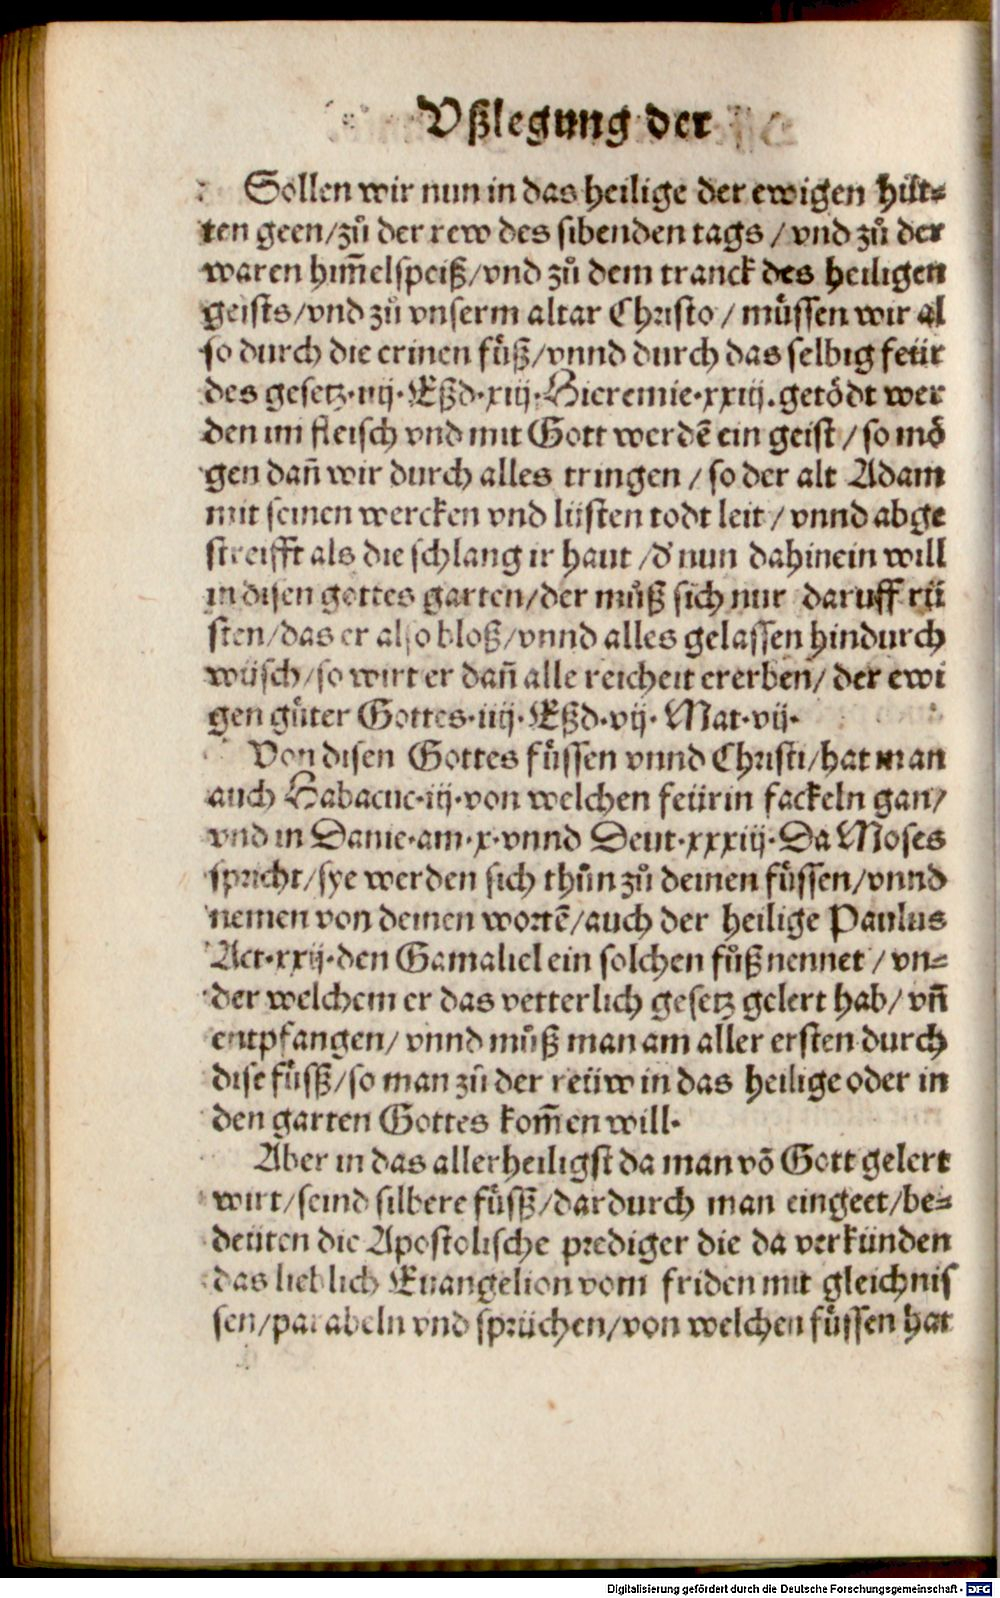 Vßlegung der
Sollen wir nun in das heilige der ewigen hüt⸗
ten geen/zů der rew des sibenden tags / vnd zů der
waren him̄elspeiß/vnd zů dem tranck des heiligen
geists/vnd zů vnserm altar Christo / müssen wir al
so durch die erinen füß/vnnd durch das selbig feür
des gesetz·iiij·Eßd·xiij·Hieremie·xxiij.getödt wer
den im fleisch vnd mit Gott werdē ein geist / so mö
gen dañ wir durch alles tringen / so der alt Adam
mit seinen wercken vnd lüsten todt leit / vnnd abge
streifft als die schlang ir haut /d' nun dahinein will
in disen gottes garten/der můß sich nur daruff rü
sten/das er also bloß/vnnd alles gelassen hindurch
wüsch/so wirt er dañ alle reicheit ererben/ der ewi
gen güter Gottes·iiij·Eßd·vij·Mat·vij·
Von disen Gottes füssen vnnd Christi/hat man
auch Habacuc·iij·von welchen feürin fackeln gan/
vnd in Danie·am·x·vnnd Deut·xxxiij·Da Moses
spricht/sye werden sich thůn zů deinen füssen/vnnd
nemen von deinen wortē/auch der heilige Paulus
Act·xxij·den Gamaliel ein solchen fůß nennet / vn⸗
der welchem er das vetterlich gesetz gelert hab/ vñ
entpfangen/ vnnd můß man am aller ersten durch
dise füß/so man zů der reüw in das heilige oder in
den garten Gottes kom̄en will·
Aber in das allerheiligst da man võ Gott gelert
wirt/seind silbere füß/dardurch man eingeet/be⸗
deüten die Apostolische prediger die da verkünden
das lieblich Euangelion vom friden mit gleichnis
sen/parabeln vnd sprüchen/von welchen füssen hat
Digitalisierung gefördert durch die Deutsche Forschungsgemeinschaft - DFG